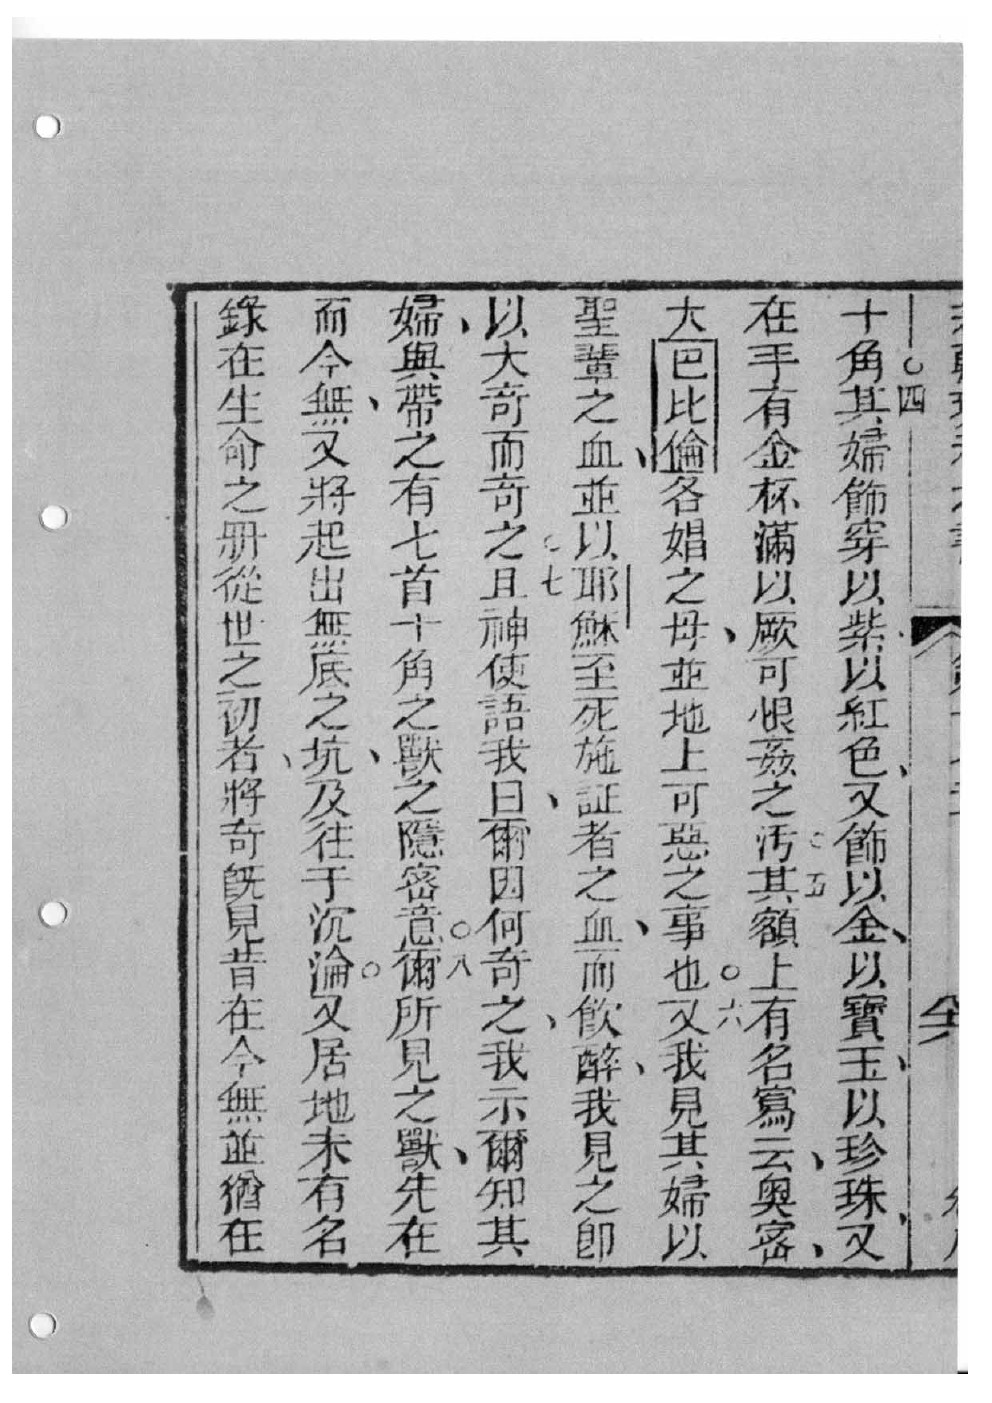 四
十角其婦飾穿以紫、以紅色、又飾以金、以寶玉、以珍珠、又
在手有金杯滿以厥可恨姦之污○五其額上有名寫云、奧密、
大巴比倫各娼之母、並地上可惡之事也○六又我見其婦以
聖輩之血、並以耶穌至死施証者之血、而飲醉、我見之卽
以大奇而奇之○七且神使語我曰、爾因何奇之、我示爾知其
婦、與帶之有七首十角之獸之隱密意○八爾所見之獸、先在
而今無、又將起出無底之坑、及往于沉淪○又居地未有名
錄在生命之册從世之初者、將奇旣見昔在今無並猶在